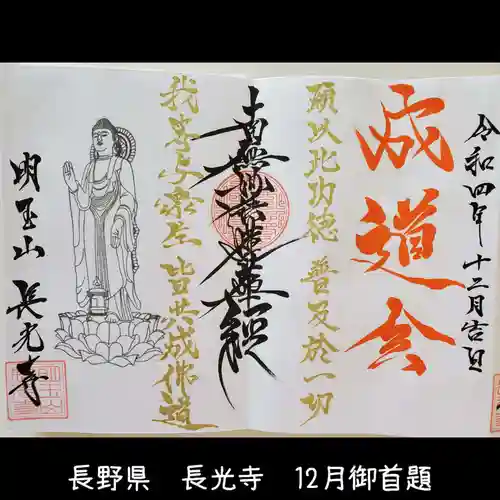 令和四年十二月吉日
成道会
願以此功徳 普及於一切
南無妙法蓮華経
我等与衆生 皆共成佛道
明玉山 長光寺
長野県 長光寺 12月御首題